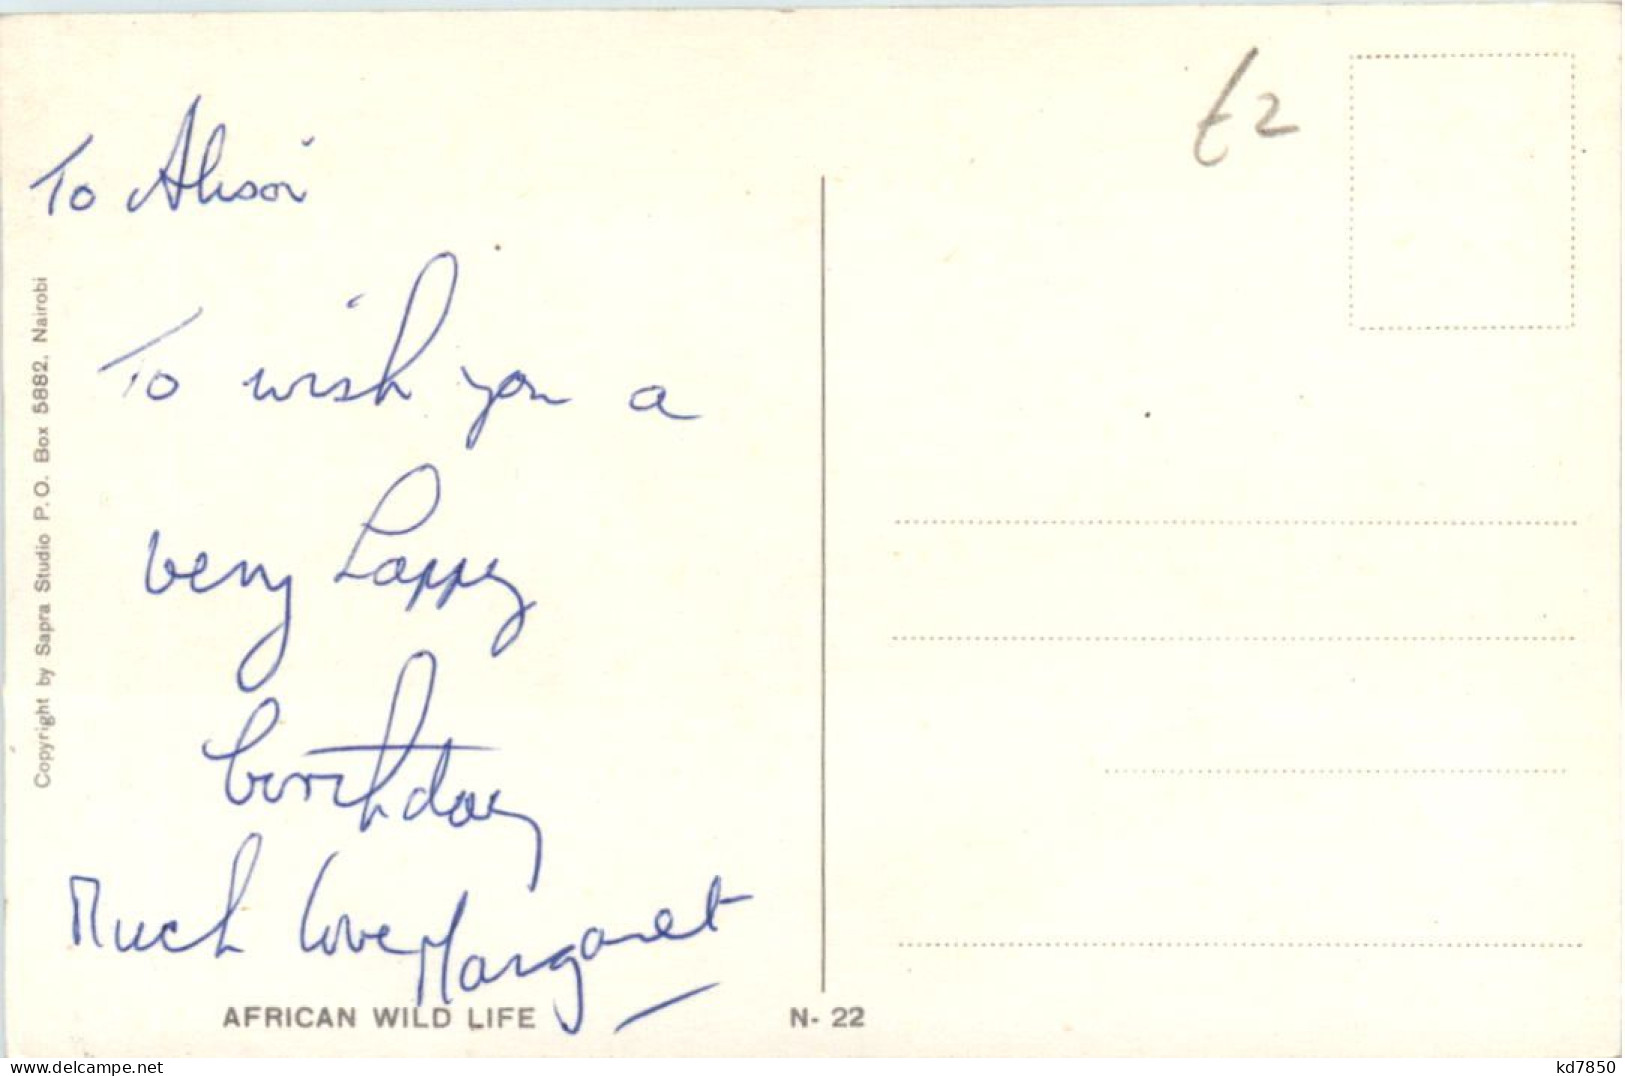 £2
To Alison
To wish you a
very happy
birthday
Much love Margaret
Copyright by Sapra Studio P.O. Box 5882, Nairobi
AFRICAN WILD LIFE
N- 22
delcampe.net
kd7850